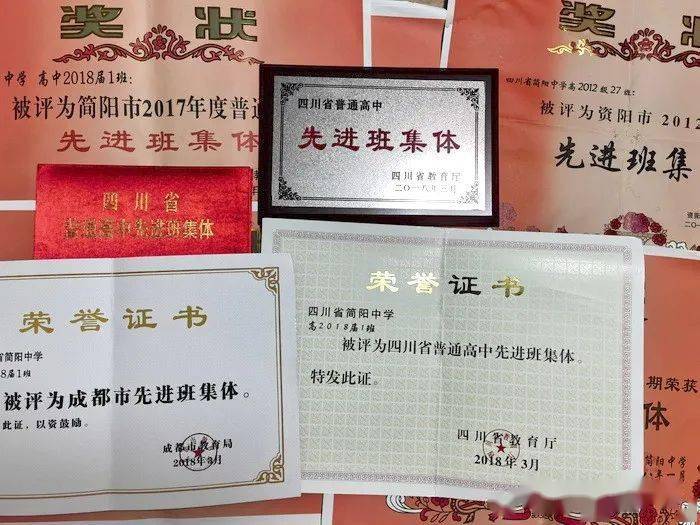 奖状
中学 高中2018届1班:
被评为简阳市2017年度普通
先进班集体
四川省普通高中
先进班集体
四川省教育厅
二〇一八年三月
奖状
四川省简阳中学高2012级27班:
被评为资阳市 2012
先进班集
四川省
普通高中先进班集体
荣誉证书
省简阳中学
8届1班
被评为成都市先进班集体。
此证,以资鼓励。
成都市教育局
2018年3月
荣誉证书
四川省简阳中学
高2018届1班
被评为四川省普通高中先进班集体。
特发此证。
四川省教育厅
2018年3月
期荣获
体
简阳中学
八年一月